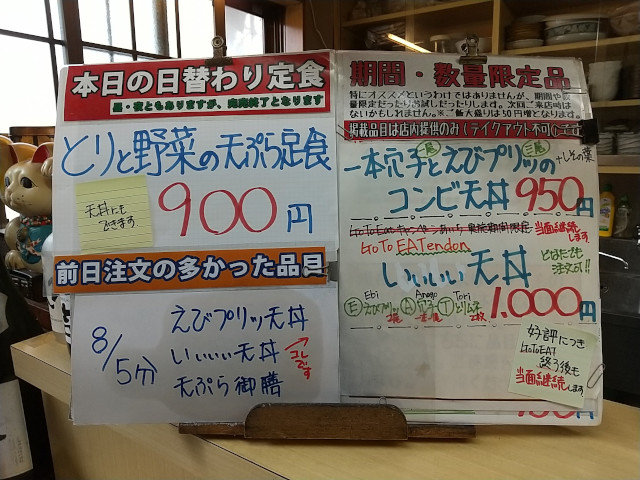 本日の日替わり定食
昼・夜ともありますが、完売終了となります
とりと野菜の天ぷら定食
900円
天丼にも
できます
前日注文の多かった品目
8/5分
えびプリッ天丼
いいいい天丼
コレです
天ぷら御膳
期間・数量限定品
特にオススメというわけではありませんが、期間や数
量限定だったりお試しだったりします。次回ご来店時は
ないかもしれません。※ご飯大盛りは50円増となります。
掲載品目は店内提供のみ(テイクアウト不可)
一本穴子とえびプリッの
一尾
三尾
+しその葉
コンビ天丼 950円
GoToEatキャンペーンあいち 実施期間限定
当面継続します。
GoTo EATendon
いいいい天丼
とばにても
注文可!!
Ebi Anago Tori
Ⓔえびプリッ Ⓐ穴子 Ⓣとりムネ
1,000円
好評につき
GoToEAT
終了後も
当面継続します